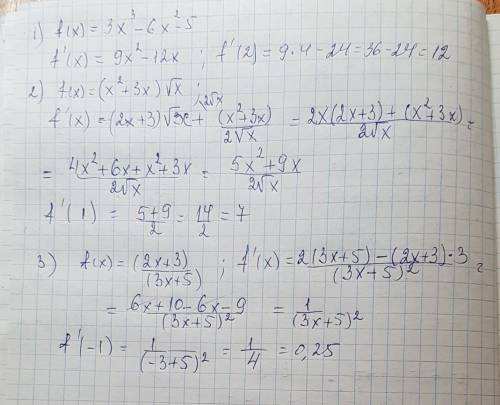 1) f(x) = 3x³ - 6x² - 5
f'(x) = 9x² - 12x ; f'(2) = 9·4 - 24 = 36 - 24 = 12
2) f(x) = (x² + 3x)√x ;
f'(x) = (2x+3)√x + (x²+3x)/2√x = 2x(2x+3) + (x²+3x)/2√x =
= 4x² + 6x + x² + 3x/2√x = 5x² + 9x/2√x
f'(1) = 5+9/2 = 14/2 = 7
3) f(x) = (2x+3)/(3x+5) ; f'(x) = 2(3x+5) - (2x+3)·3/(3x+5)² =
= 6x + 10 - 6x - 9/(3x+5)² = 1/(3x+5)²
f'(-1) = 1/(-3+5)² = 1/4 = 0,25